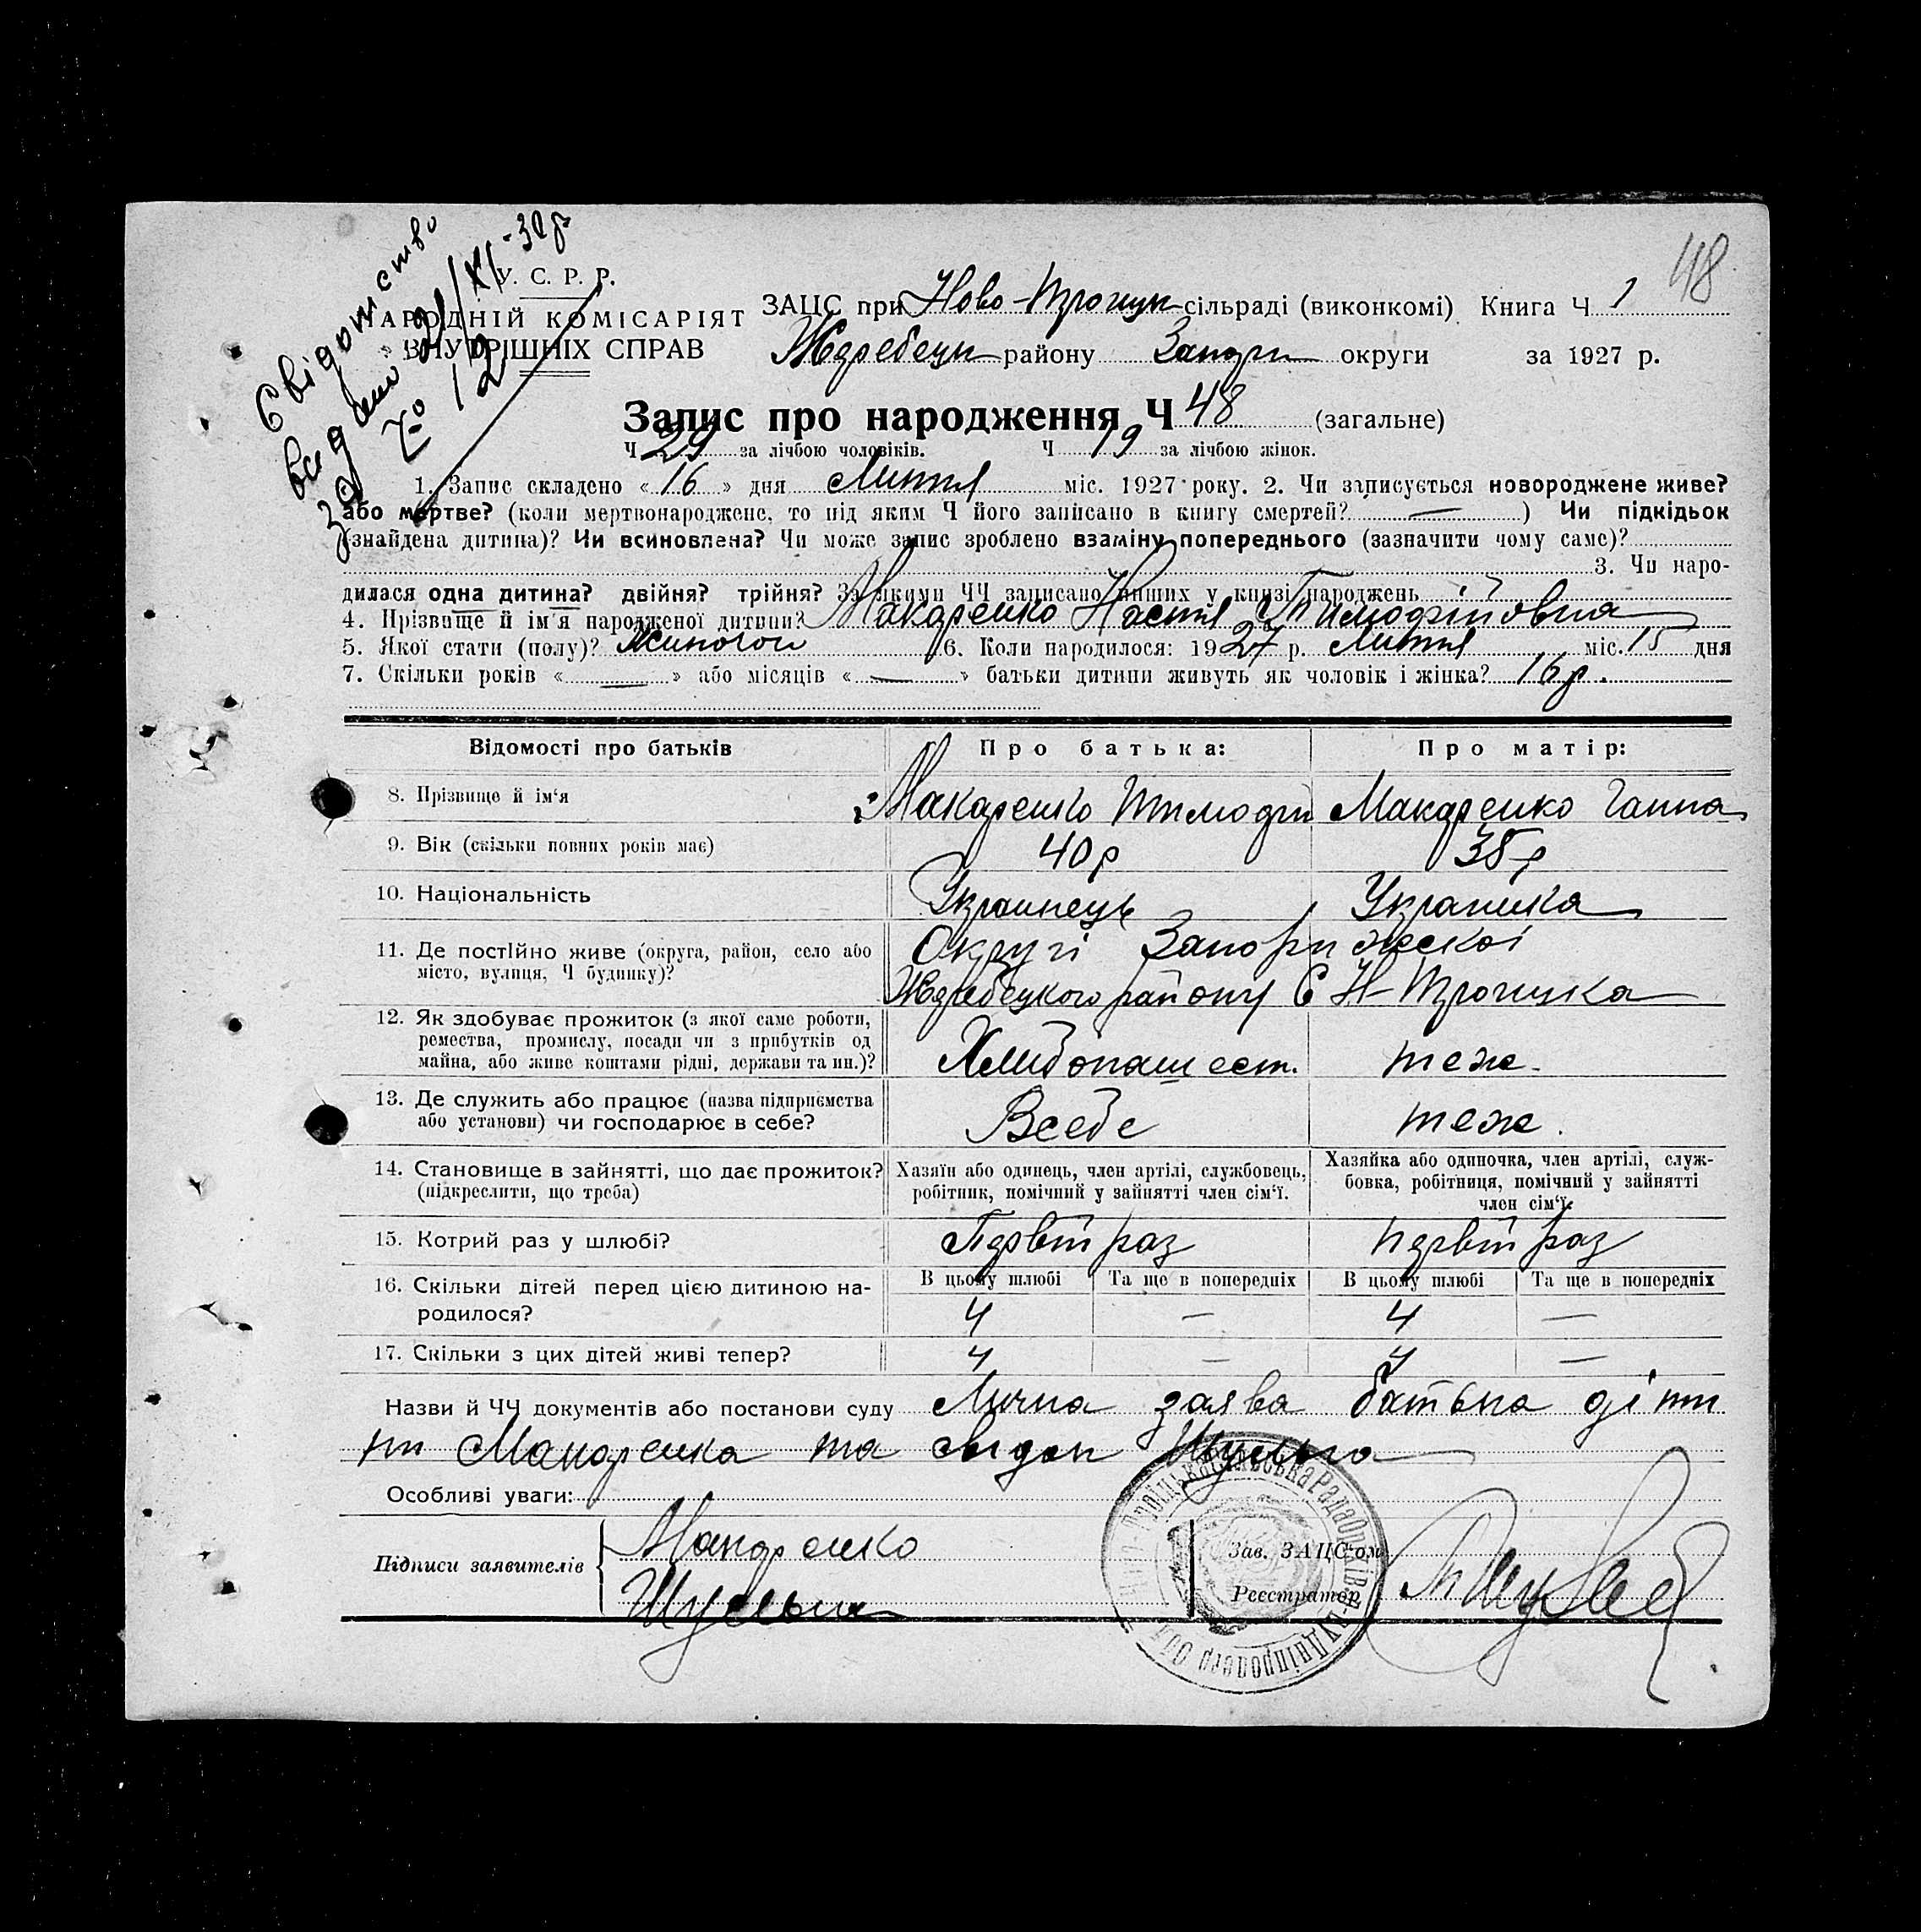 48
Свідоцтво
видано 29/XI-30р
за № 12
У. С. Р. Р.
НАРОДНІЙ КОМІСАРІЯТ
ВНУТРІШНІХ СПРАВ
ЗАЦС при Ново-Троицк сільраді (виконкомі) Книга Ч 1
Жеребецк району Запорж округи за 1927 р.
Запис про народження Ч 48 (загальне)
Ч 29 за лічбою чоловіків. Ч 19 за лічбою жінок.
1. Запис складено «16» дня Липня міс. 1927 року. 2. Чи записується новороджене живе?
або мертве? (коли мертвонароджене, то під яким Ч його записано в книгу смертей? — ) Чи підкідьок
(знайдена дитина)? Чи всиновлена? Чи може запис зроблено взаміну попереднього (зазначити чому саме)?
3. Чи наро-
дилася одна дитина? двійня? трійня? За якими ЧЧ записано инших у книзі народжень
4. Прізвище й ім'я народженої дитини? Макаренко Настя Тимофійовна
5. Якої стати (полу)? Жиночои 6. Коли народилося: 1927 р. Липня міс. 15 дня
7. Скільки років «—» або місяців «—» батьки дитини живуть як чоловік і жінка? 16 р.
Відомості про батьків Про батька: Про матір:
8. Прізвище й ім'я Макаренко Тимофи Макаренко Ганна
9. Вік (скільки повних років має) 40 р 38 р
10. Національність Украинець Украинка
11. Де постійно живе (округа, район, село або Округі Запорижскоі
місто, вулиця, Ч будинку)? Жеребецкого району С Н-Троицка
12. Як здобуває прожиток (з якої саме роботи,
ремества, промислу, посади чи з прибутків од
майна, або живе коштами рідні, держави та ин.)? Хлибопашест. теж.
13. Де служить або працює (назва підприємства
або установи) чи господарює в себе? Всебе теж.
14. Становище в зайнятті, що дає прожиток? Хазяїн або одинець, член артілі, службовець, Хазяйка або одиночка, член артілі, служ-
(підкреслити, що треба) робітник, помічний у зайнятті член сім'ї. бовка, робітниця, помічний у зайнятті
член сім'ї.
15. Котрий раз у шлюбі? Первий раз первий раз
16. Скільки дітей перед цією дитиною на- В цьому шлюбі Та ще в попередніх В цьому шлюбі Та ще в попередніх
родилося? 4 — 4 —
17. Скільки з цих дітей живі тепер? 4 — 4 —
Назви й ЧЧ документів або постанови суду Лична заява батька діти
ни Макаренка та свидки
Особливі уваги:
Макаренко
Підписи заявителів
Зав. ЗАЦС'ом
Реєстратор